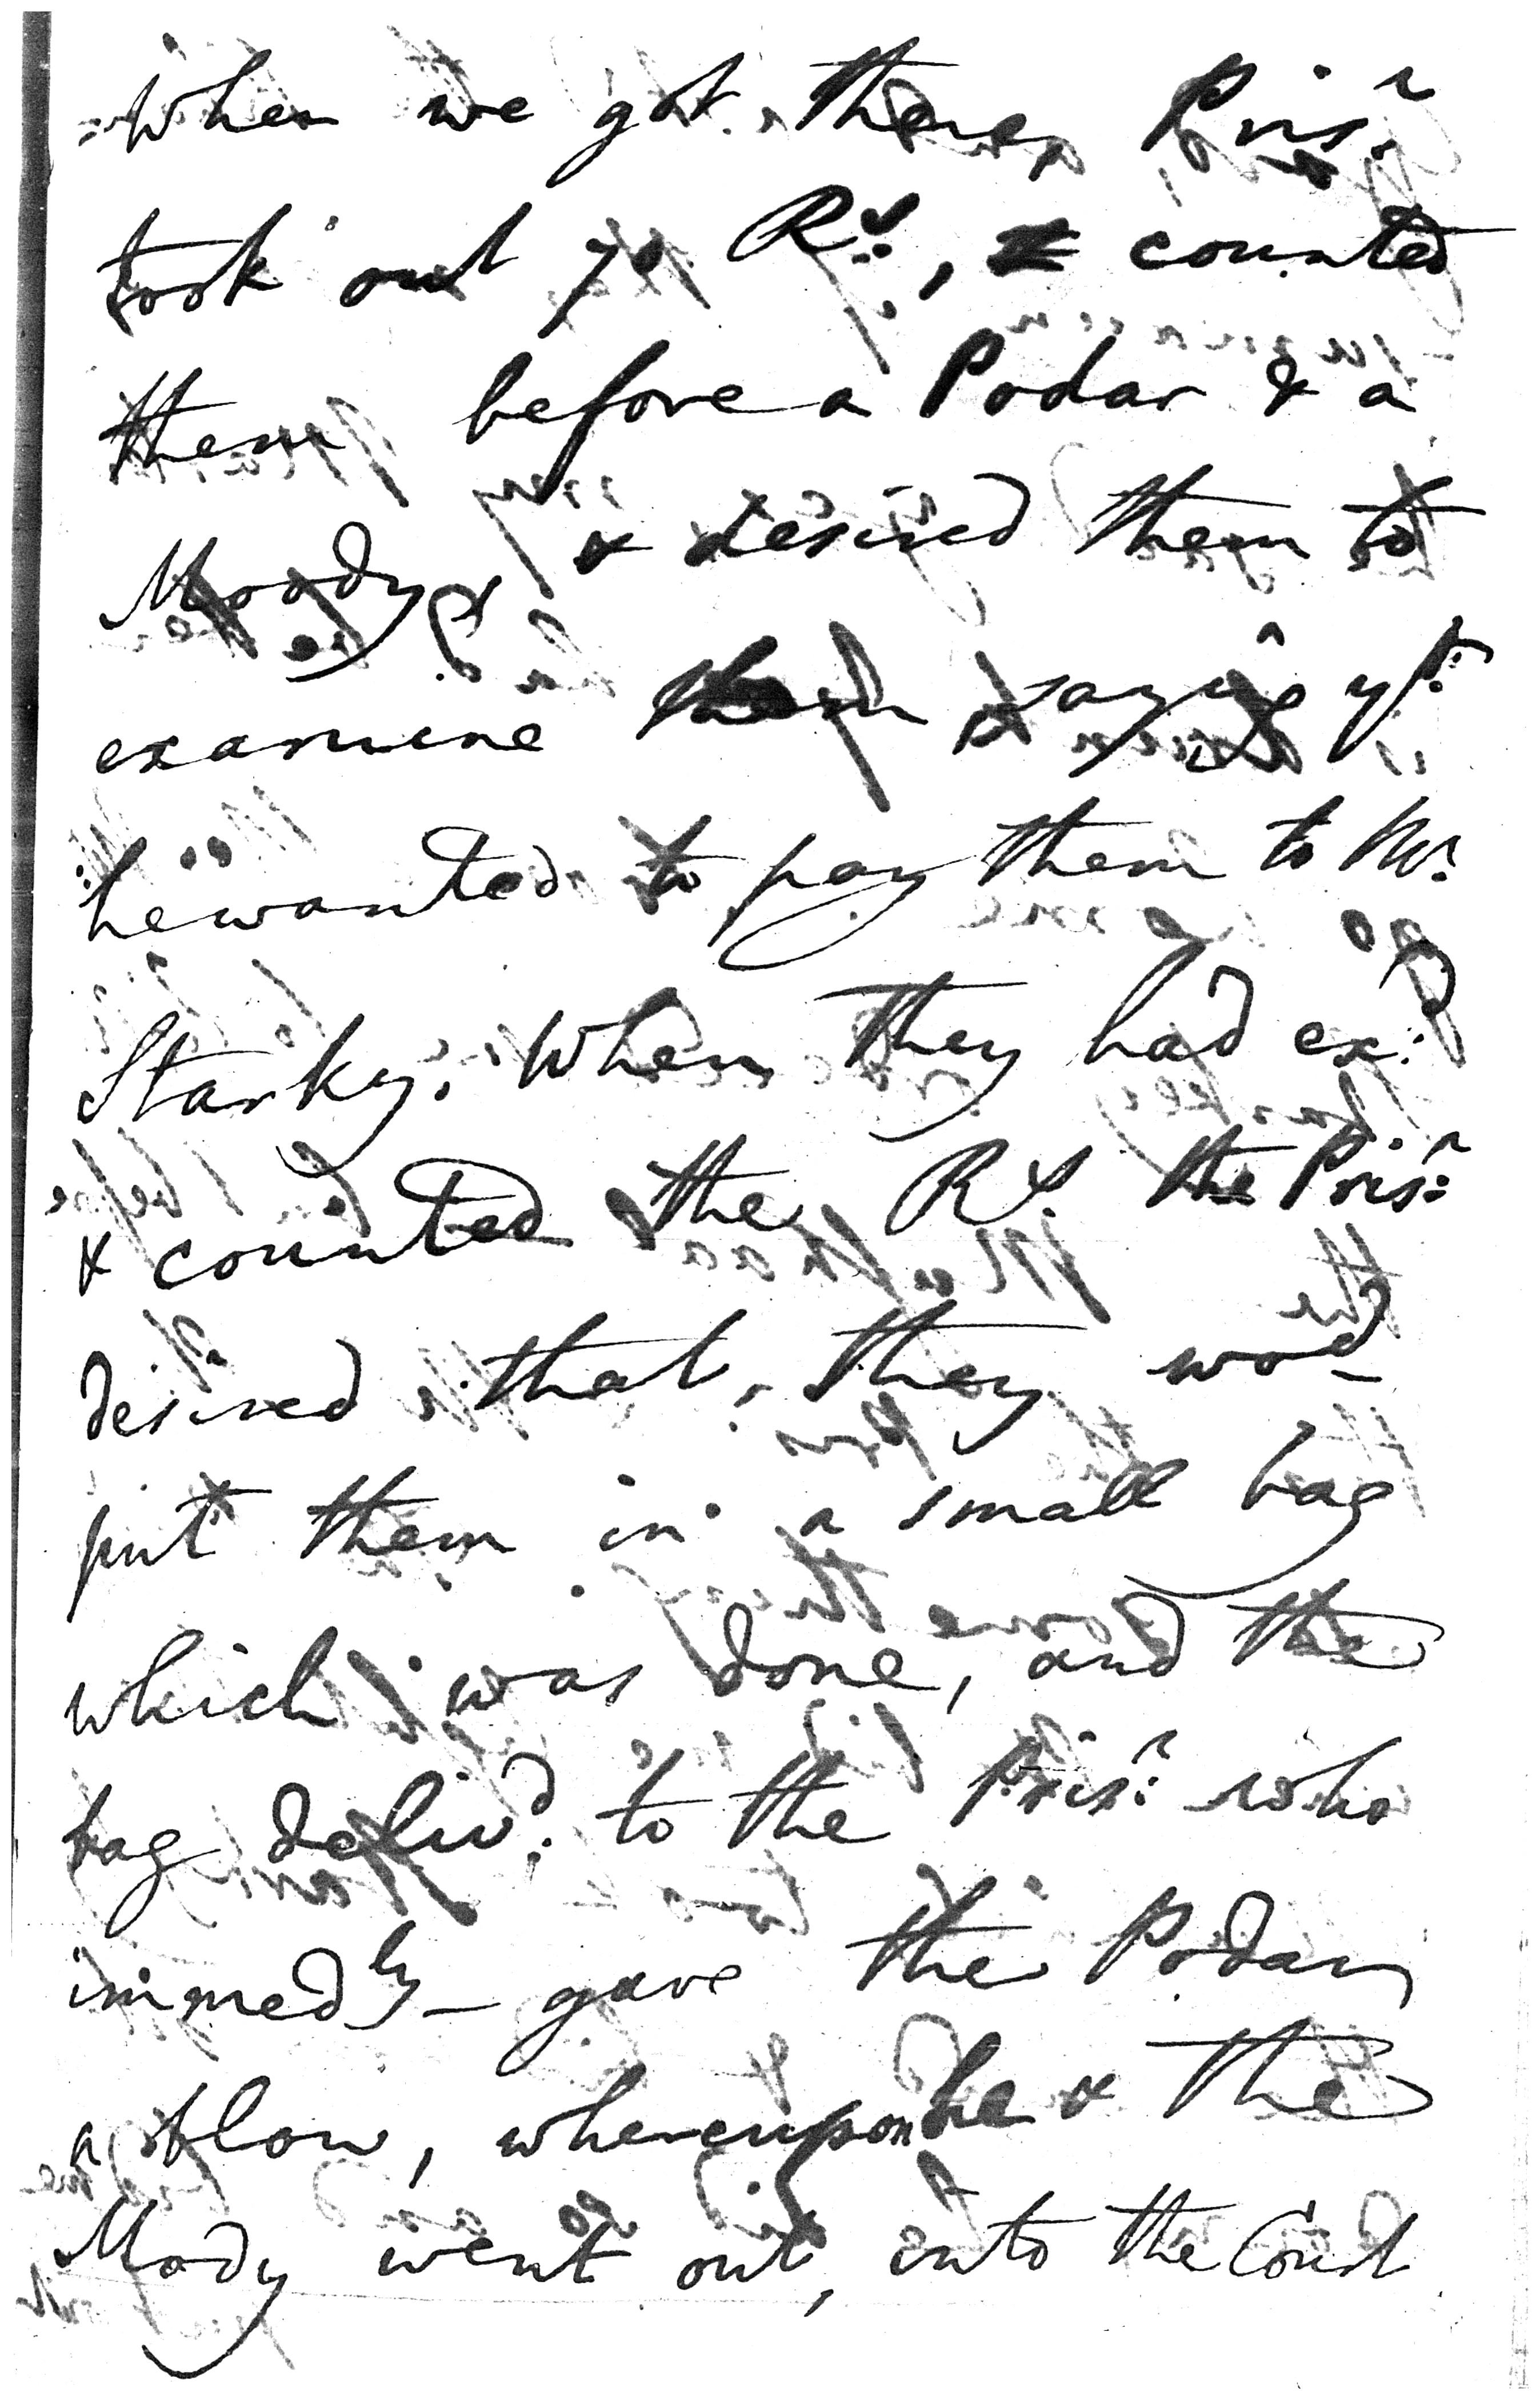 When we got there, Pris.r
took out 70 R.s, & counted
them before a Podar & a
Moody, & desired them to
examine them saying y.t
he wanted to pay them to M.r
Starky. When they had ex.d
& counted the R.s the Pris.r
desired that they wod
put them in a small bag
which was done, and the
bag deliv.d to the Pris.r who
immedly gave the Podar
a blow, whereupon he & the
Mody went out, into the Court